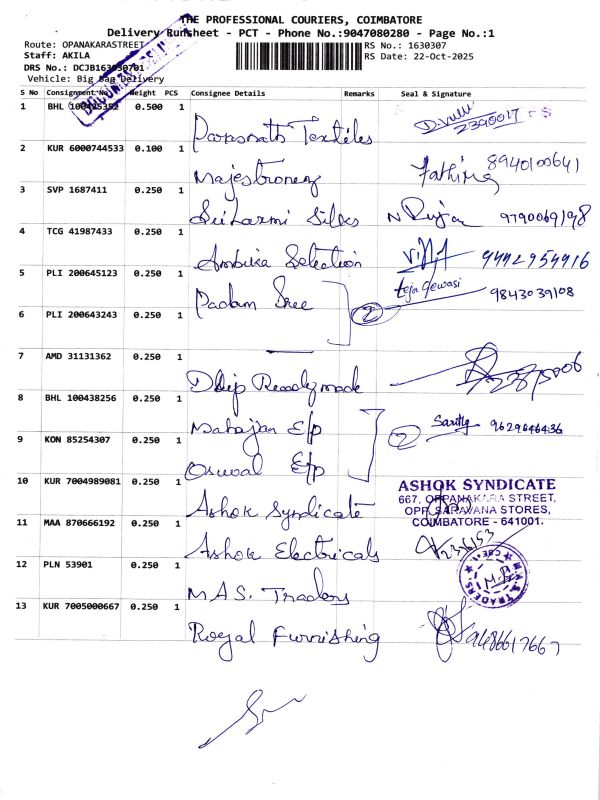 THE PROFESSIONAL COURIERS, COIMBATORE
Delivery Runsheet - PCT - Phone No.:9047080280 - Page No.:1
Route: OPANAKARASTREET
RS No.: 1630307
Staff: AKILA
RS Date: 22-Oct-2025
DRS No.: DCJB163030701
Vehicle: Big Bag Delivery
S No Consignment No Weight PCS Consignee Details Remarks Seal & Signature
1 BHL 0.500 1 Textiles 2390017
2 KUR 6000744533 0.100 1 Majestronenz Fathima 8940100641
3 SVP 1687411 0.250 1 Sri Laxmi Silks N 9790069198
4 TCG 41987433 0.250 1 Ambika Selection 9442954916
5 PLI 200645123 0.250 1 Padam Sree teja dewasi 9843039108
2
6 PLI 200643243 0.250 1
7 AMD 31131362 0.250 1 Dilip Readymade
8 BHL 100438256 0.250 1 Mahajan E/p 9629646436
2
9 KON 85254307 0.250 1 Oswal E/p
10 KUR 7004989081 0.250 1 Ashok Syndicate
ASHOK SYNDICATE
667, OPPANAKARA STREET,
OPP. SARAVANA STORES,
COIMBATORE - 641001.
11 MAA 870666192 0.250 1 Ashok Electricals
12 PLN 53901 0.250 1 M.A.S. Traders
M.A.S. TRADERS CBE.
13 KUR 7005000667 0.250 1 Royal Furnishing